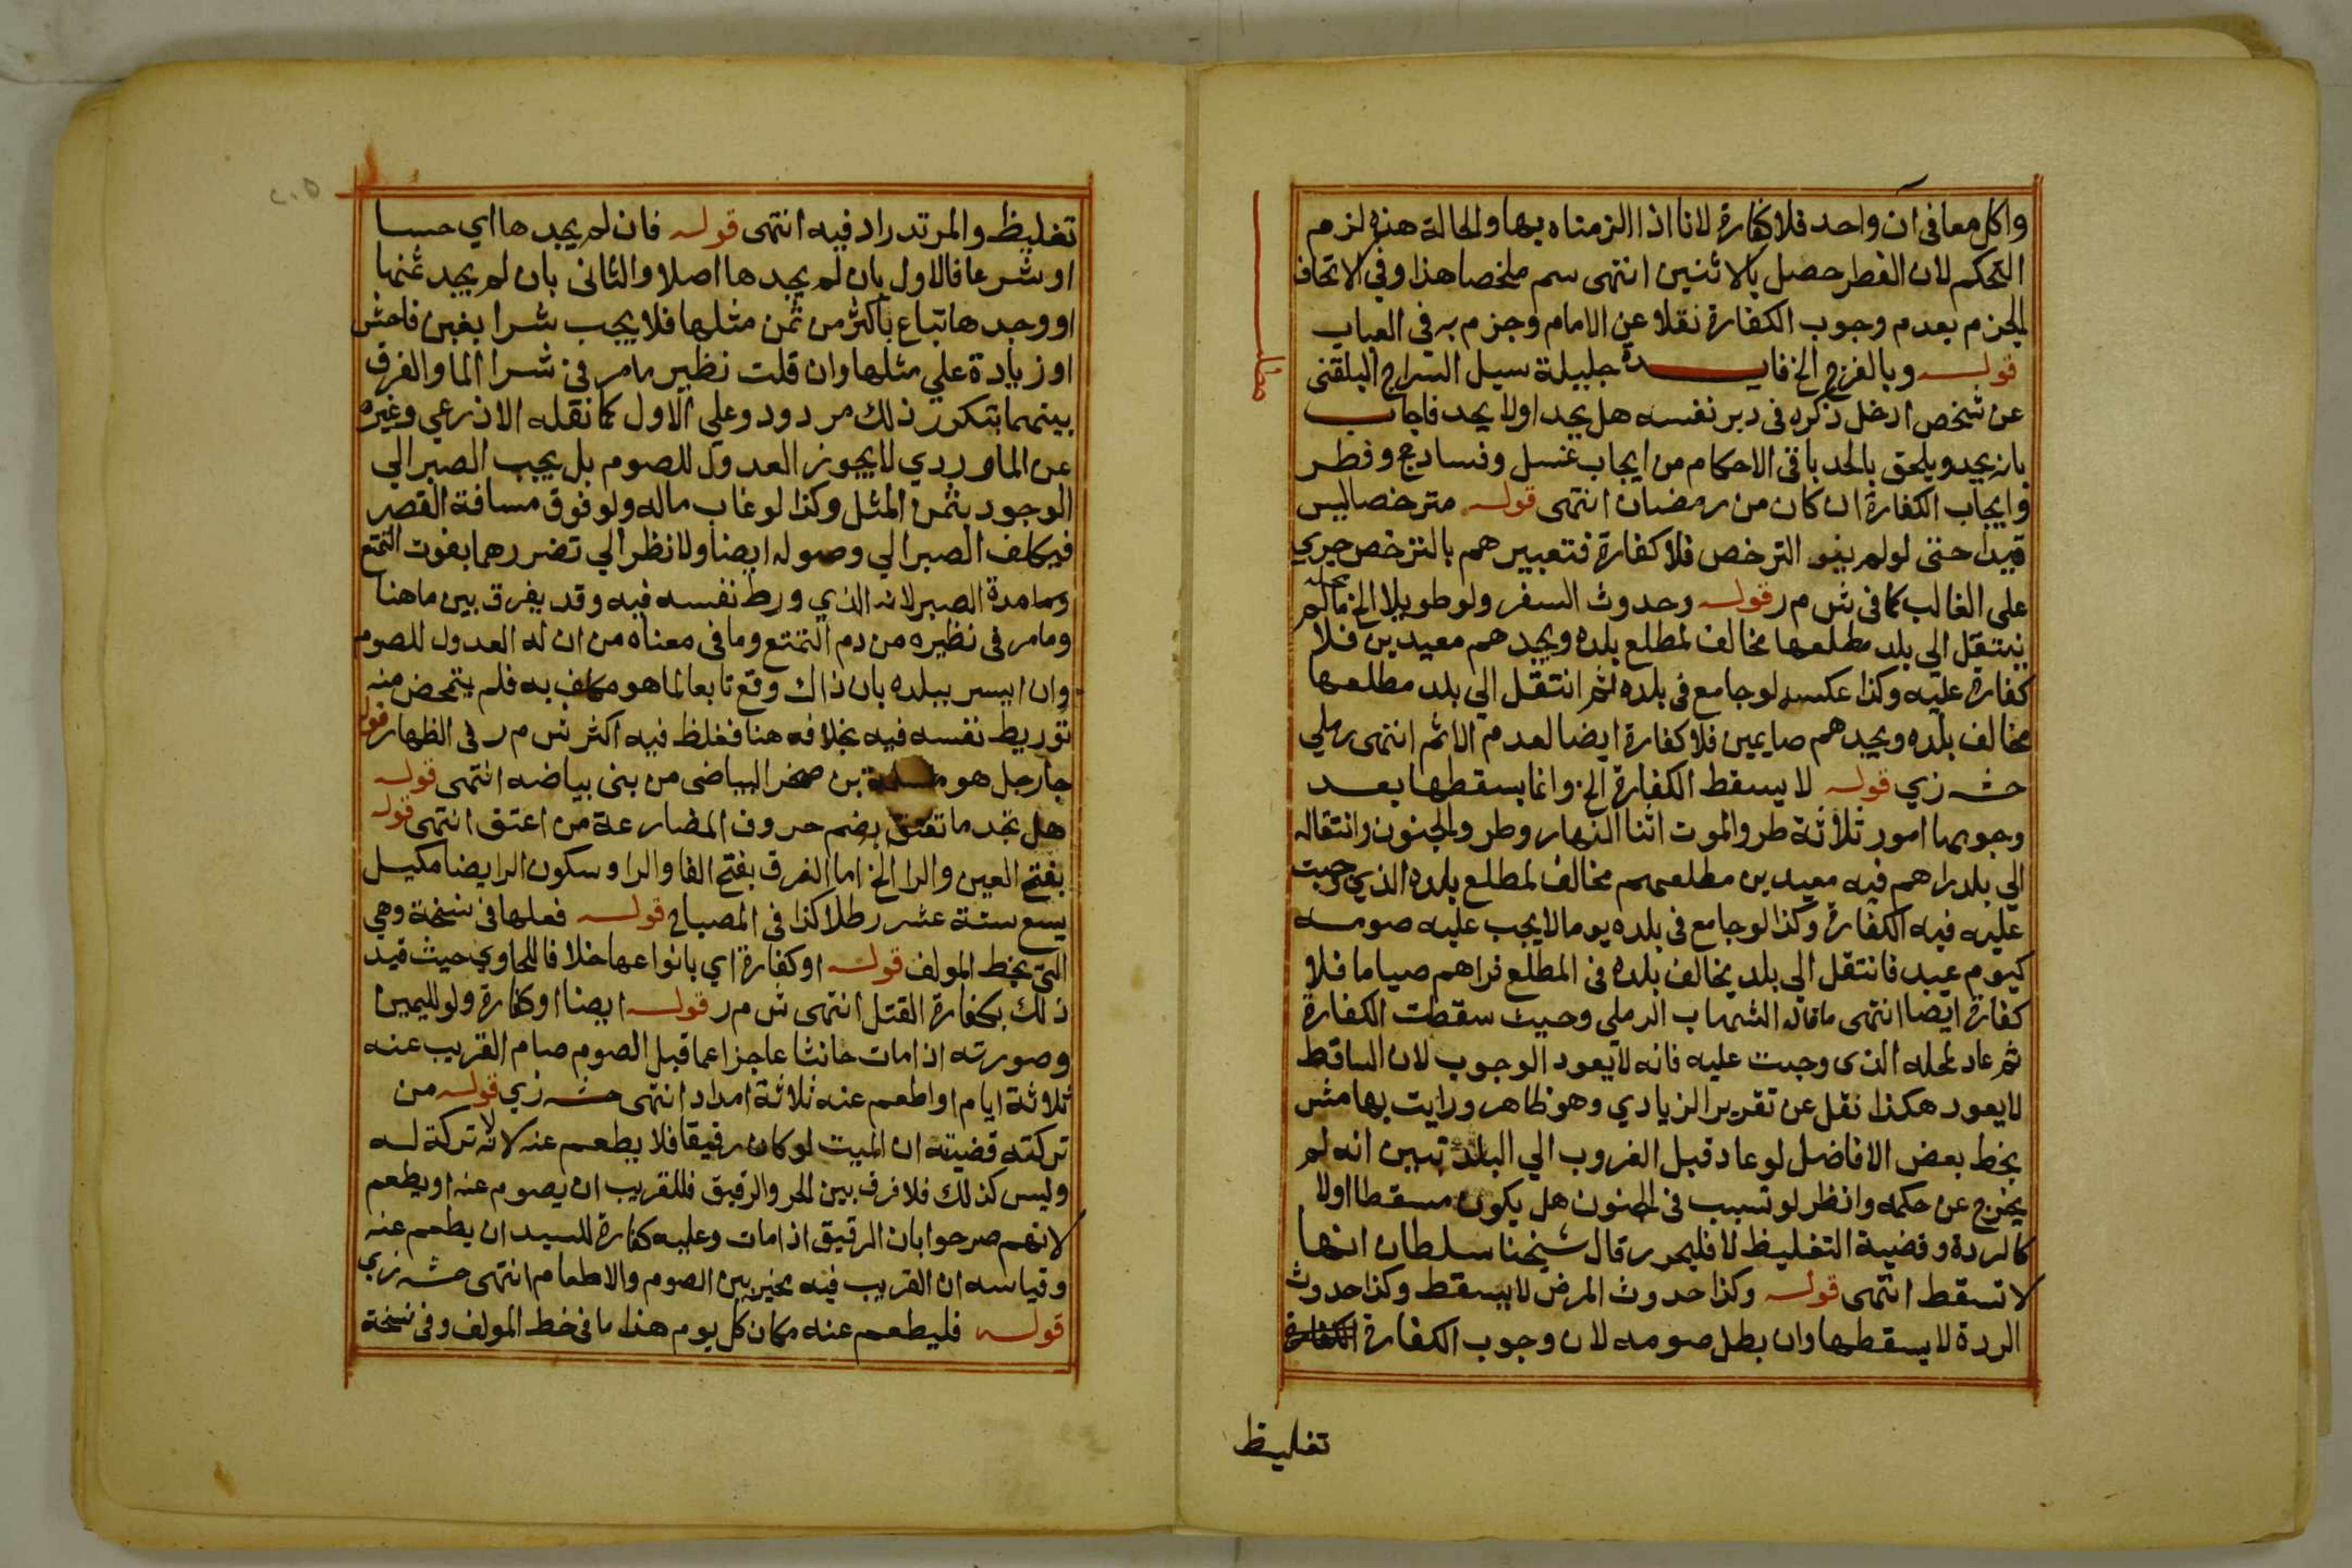 واكل معا فى ان واحد فلا كفارة لانا اذا الزمناه بها والحالة هذه لزم
التحكم لان الفطر حصل بالاثنين انتهى سم ملخصا هذا وفي الاتحاف
الجزم بعدم وجوب الكفارة نقلا عن الامام وجزم به فى العباب
قوله وبالفرج الخ فايدة جليلة سيل السراج البلقنى
عن شخص ادخل ذكره فى دبر نفسه هل يحد اولا يحد فاجاب
بانه يحد ويلحق بالحد باقى الاحكام من ايجاب غسل وفساد حج وفطر
وايجاب الكفارة ان كان من رمضان انتهى قوله مترخصا ليس
قيدا حتى لو لم ينو الترخص فلا كفارة فتعبيرهم بالترخص جري
على الغالب كما فى ش م ر قوله وحدوث السفر ولو طويلا الخ محله مالم
ينتقل الي بلد مطلعها مخالف لمطلع بلده ويجدهم معيدين فلا
كفارة عليه وكذا عكسه لو جامع فى بلده ثم انتقل الي بلد مطلعها
مخالف بلده ويجدهم صايمين فلا كفارة ايضا لعدم الاثم انتهى رملي
حشه زي قوله لا يسقط الكفارة الخ وانما يسقطها بعد
وجوبها امور ثلاثة طرو الموت اثنا النهار وطرو الجنون وانتقاله
الي بلد راهم فيه معيدين مطلعهم مخالف لمطلع بلده الذي وجبت
عليه فيه الكفارة وكذا لو جامع فى بلده يوما لا يجب عليه صومه
كيوم عيد فانتقل الي بلد يخالف بلده فى المطلع فراهم صياما فلا
كفارة ايضا انتهى ما قاله الشهاب الرملى وحيث سقطت الكفارة
ثم عاد لمحله الذى وجبت عليه فانه لا يعود الوجوب لان الساقط
لا يعود هكذا نقل عن تقرير الزيادي وهو ظاهر ورايت بهامش
بخط بعض الافاضل لو عاد قبل الغروب الي البلد تبين انه لم
يخرج عن حكمه وانظر لو تسبب فى الجنون هل يكون مسقطا اولا
كالردة وقضية التغليظ لا فليحرر قال شيخنا سلطان انها
لا تسقط انتهى قوله وكذا حدوث المرض لا يسقط وكذا حدوث
الردة لا يسقطها وان بطل صومه لان وجوب الكفارة
تغليظ
تغليظ والمرتد يراد فيه انتهى قوله فان لم يجدها اي حسا
او شرعا فالاول بان لم يجدها اصلا والثانى بان لم يجد ثمنها
او وجدها تباع باكثر من ثمن مثلها فلا يجب شرا بغبن فاحش
او زيادة علي مثلها وان قلت نظير ما مر فى شرا الما والفرق
بينهما بتكرر ذلك مردود وعلي الاول كما نقله الاذرعي وغيره
عن الماوردي لا يجوز العدول للصوم بل يجب الصبر الي
الوجود بثمن المثل وكذا لو غاب ماله ولو فوق مسافة القصر
فيكلف الصبر الي وصوله ايضا ولا نظر الي تضررهما بفوت التمتع
وما مدة الصبر لانه الذي ورط نفسه فيه وقد يفرق بين ما هنا
وما مر فى نظيره من دم التمتع وما فى معناه من ان له العدول للصوم
وان ايسر ببلده بان ذاك وقع تابعا لما هو مكلف به فلم يتمحض منه
توريط نفسه فيه بخلافه هنا فغلظ فيه اكثر ش م ر فى الظهار قوله
جا رجل هو سلمة بن صخر البياضى من بنى بياضه انتهى قوله
هل تجد ما تعتق بضم حروف المضارعة من اعتق انتهى قوله
بفتح العين والرا الخ اما الفرق بفتح الفا والرا وسكون الرا ايضا مكيل
يسع ستة عشر رطلا كذا فى المصباح قوله فعلها فى نسخة وهي
التى بخط المولف قوله او كفارة اي بانواعها خلافا للحاوي حيث قيد
ذلك بكفارة القتل انتهى ش م ر قوله ايضا او كفارة ولو لليمين
وصورته اذا مات حانثا عاجزا عما قبل الصوم صام القريب عنه
ثلاثة ايام او اطعم عنه ثلاثة امداد انتهى حشه زي قوله من
تركته قضيته ان الميت لو كان رقيقا فلا يطعم عنه لانه لا تركة له
وليس كذلك فلا فرق بين الحر والرقيق فللقريب ان يصوم عنه او يطعم
لانهم صرحوا بان الرقيق اذا مات وعليه كفارة للسيد ان يطعم عنه
وقياسه ان القريب فيه يخير بين الصوم والاطعام انتهى حشه زي
قوله فليطعم عنه مكان كل يوم هذا ما فى خط المولف وفى نسخة